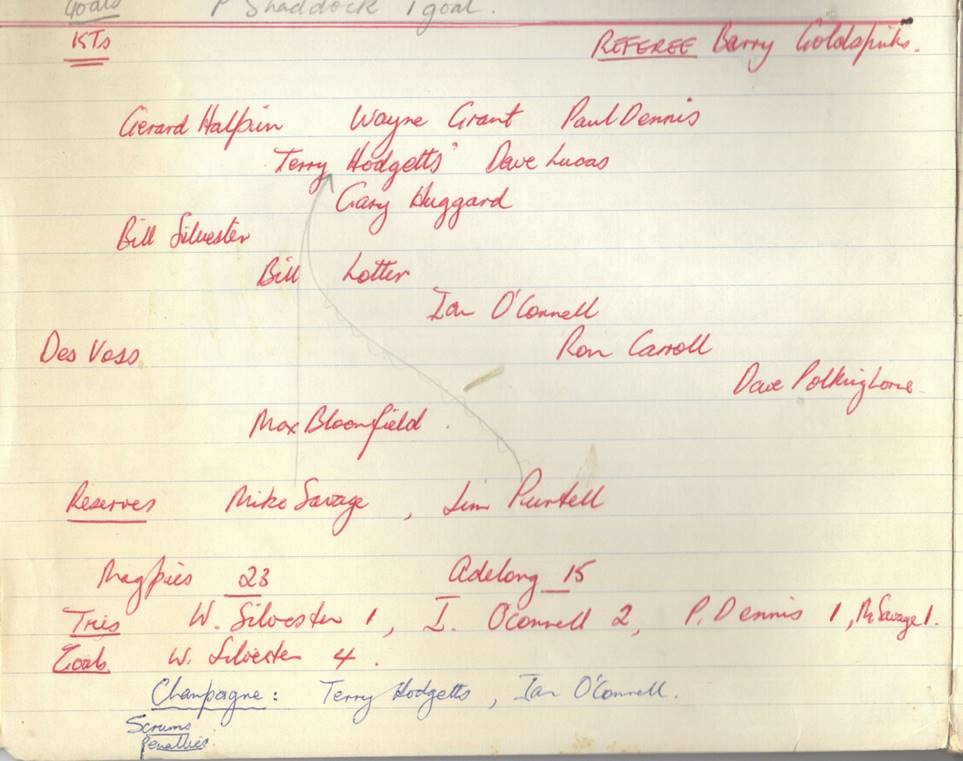 Goals P Shaddock 1 goal.
1STs REFEREE Barry Goldspinks.
Gerard Halpin Wayne Grant Paul Dennis
Terry Hodgetts Dave Lucas
Gary Huggard
Bill Silvester
Bill Lotter
Ian O'Connell
Des Voss Ron Carroll
Dave Polkinghorne
Max Bloomfield
Reserves Mike Savage, Jim Purtell
Magpies 23 Adelong 15
Tries W. Silvester 1, I. O'Connell 2, P. Dennis 1, M. Savage 1.
Goals W. Silvester 4.
Champagne: Terry Hodgetts, Ian O'Connell.
Scrums
Penalties